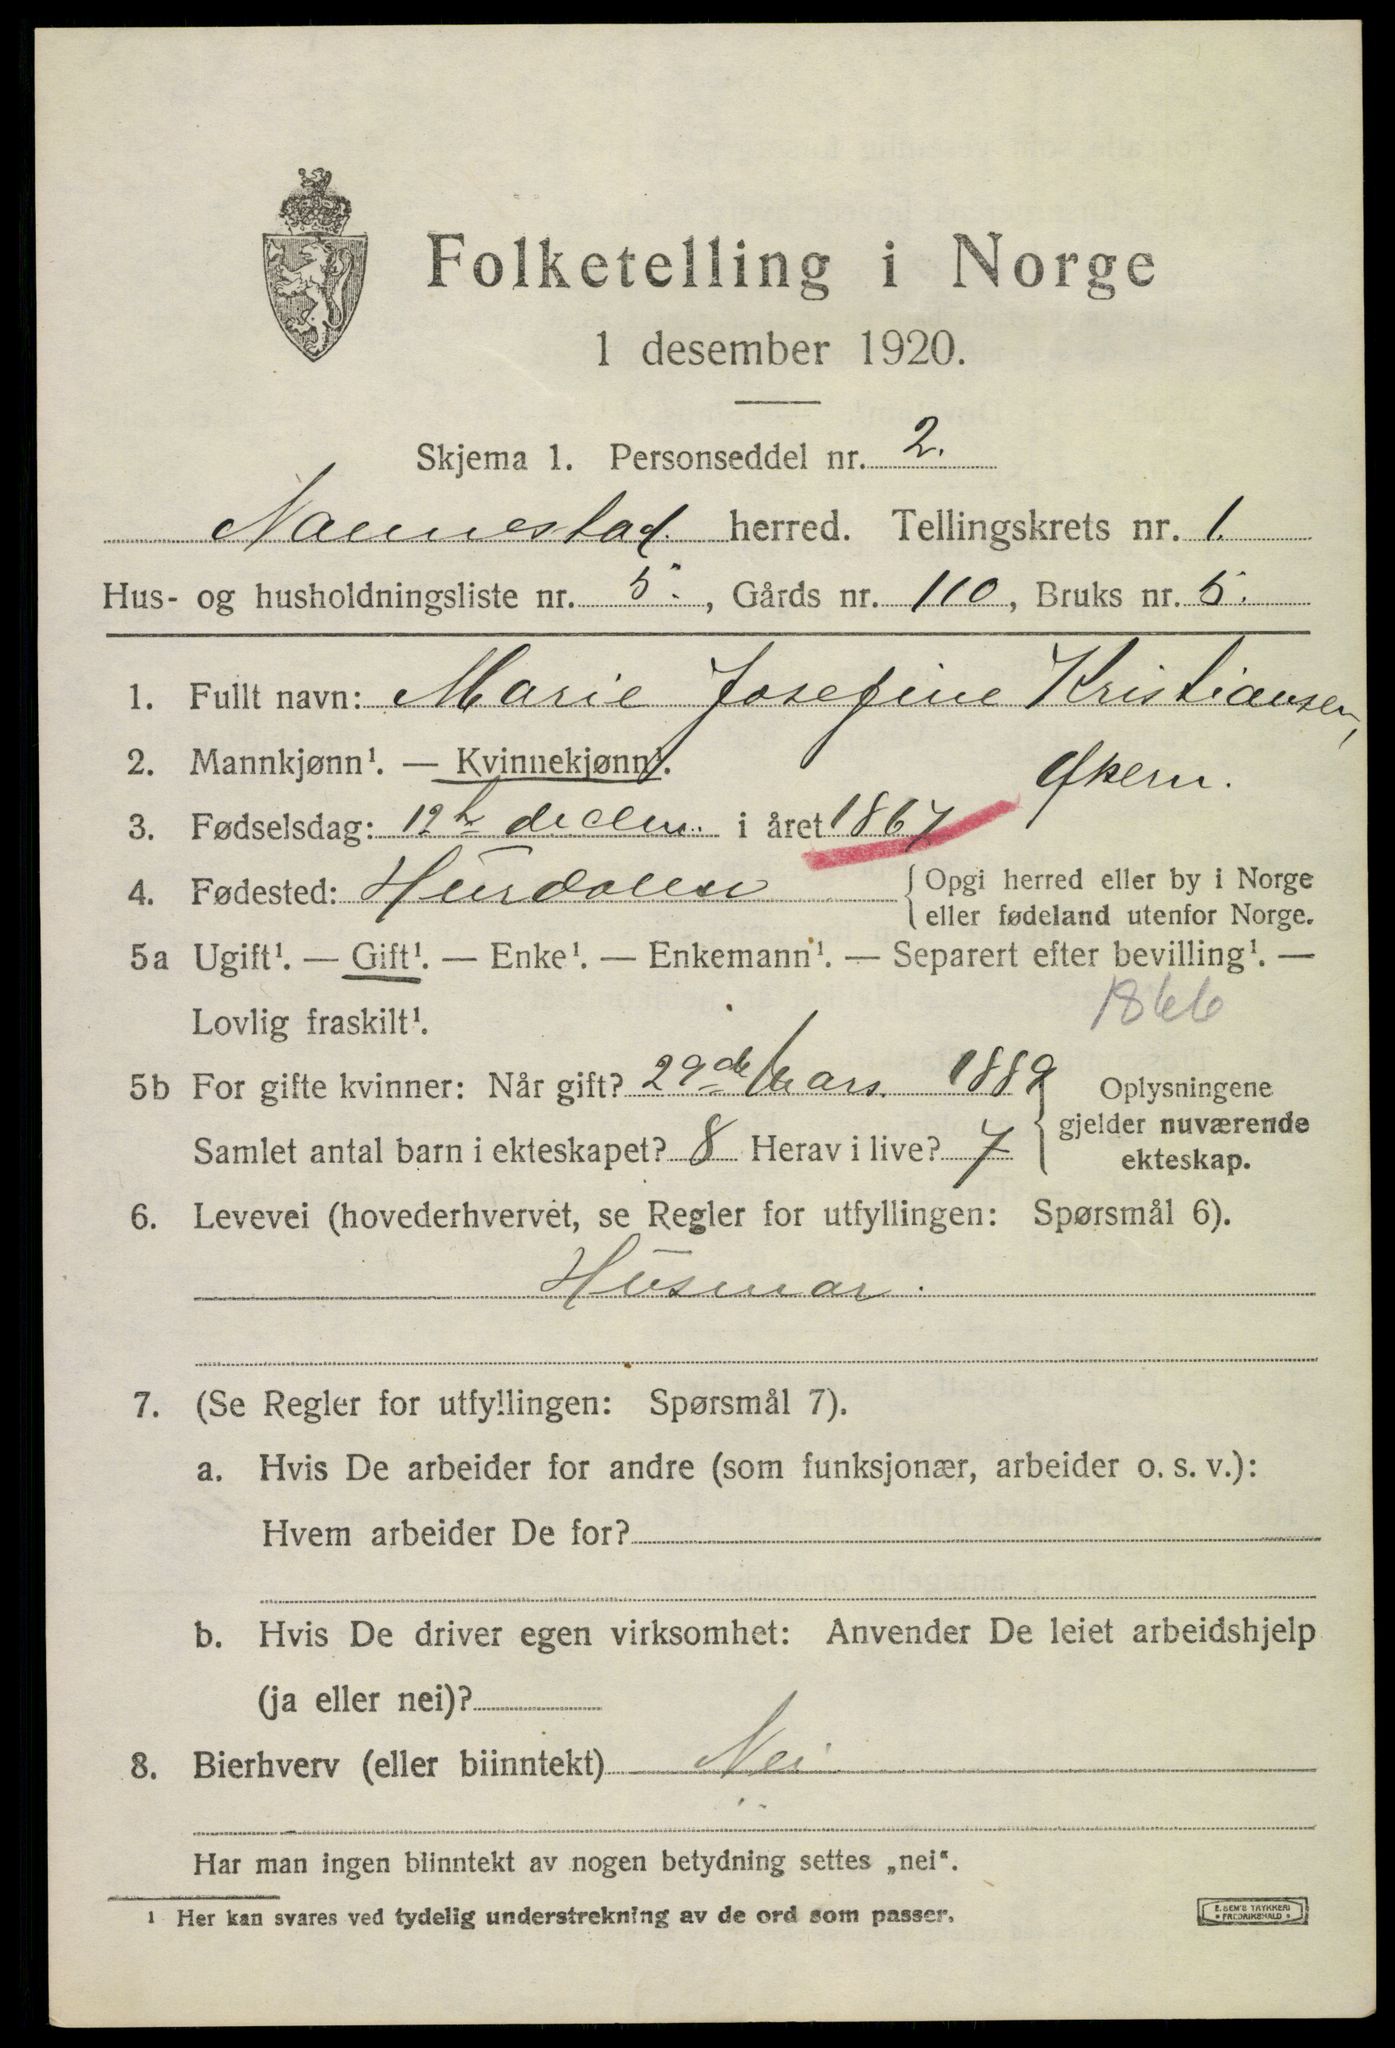 Folketelling i Norge
1 desember 1920.
Skjema 1. Personseddel nr. 2.
Nannestad. herred. Tellingskrets nr. 1.
Hus- og husholdningsliste nr. 5., Gårds nr. 110, Bruks nr. 5.
1. Fullt navn: Marie Josefine Kristiansen,
Økern.
2. Mannkjønn¹. — Kvinnekjønn¹.
3. Fødselsdag: 12te decem. i året 1867
4. Fødested: Hurdalen { Opgi herred eller by i Norge
eller fødeland utenfor Norge.
5a Ugift¹. — Gift¹. — Enke¹. — Enkemann¹. — Separert efter bevilling¹. —
Lovlig fraskilt¹.
1866
5b For gifte kvinner: Når gift? 29de Mars. 1889
Samlet antal barn i ekteskapet? 8 Herav i live? 7
Oplysningene
gjelder nuværende
ekteskap.
6. Levevei (hovederhvervet, se Regler for utfyllingen: Spørsmål 6).
Husmor.
7. (Se Regler for utfyllingen: Spørsmål 7).
a. Hvis De arbeider for andre (som funksjonær, arbeider o. s. v.):
Hvem arbeider De for?
b. Hvis De driver egen virksomhet: Anvender De leiet arbeidshjelp
(ja eller nei)?
8. Bierhverv (eller biinntekt) Nei
Har man ingen biinntekt av nogen betydning settes „nei“.
¹ Her kan svares ved tydelig understrekning av de ord som passer.
E. SEM'S TRYKKERI
FREDRIKSHALD